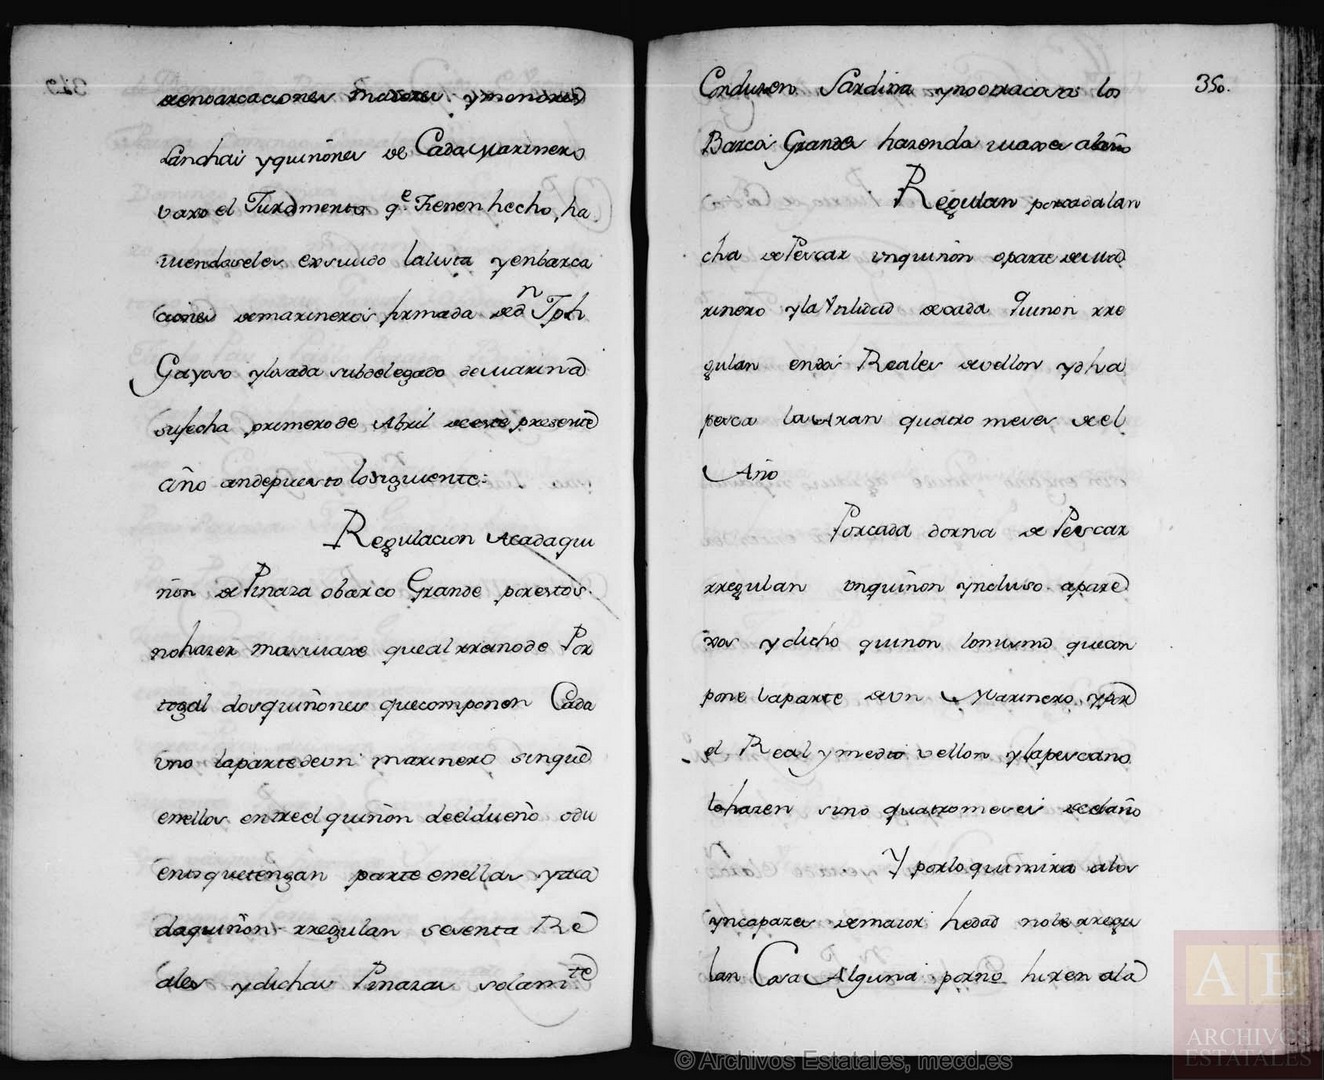 demoarcaciones maiores y menores
Lanchas y quiñones de Cada Marinero
vaxo el Juramento q.e tienen hecho, ha
viendoseles exsivido la lista y enbarca
ciones de marineros firmada de d.n Jph
Gayoso y losada subdelegado de marina
su fecha primero de Abril de este presente
año an depuesto lo siguiente:
Regulacion de cada qui
ñon de Pinaza o barco Grande por estos
no hazer mas viaxe que al rreino de Por
togal dos quiñones que componen Cada
vno la parte de vn marinero sin que
en ellos entre el quiñon de el dueño o du
eños que tengan parte en ellas y a ca
da quiñon rregulan sesenta Re
ales y dichas Pinazas solamte
350.
Conduzen Sardina y no otra cosa los
Barcos Grandes hazendo viaxes al año
Regulan por cada lan
cha de Pescar vn quiñon o parte de un ma
rinero y la Vtilidad de cada quinon rre
gulan en dos Reales de vellon y dha
pesca la aran quatro meses de el
Año
Por cada dorna de Pescar
rregulan vn quiñon yncluso apare
xos y dicho quinon lo mismo que con
pone la parte de vn Marinero y por
el Real y medio vellon y la pesca no
lo hazen sino quatro meses de el año
Y por lo que mira a los
yncapazes de maior hedad no le rregu
lan Cosa Alguna por no hir en ala
© Archivos Estatales, mecd.es
AE
ARCHIVOS
ESTATALES